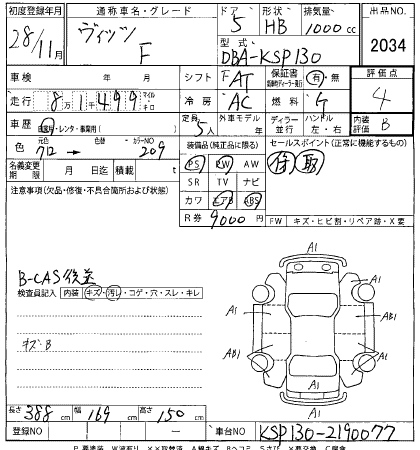 初度登録年月 通称車名・グレード ドア 形状 排気量 出品NO.
28/11月 ヴィッツ F 5 HB 1000 cc 2034
型式 DBA-KSP130
車検 年 月 シフト FAT 保証書 有・無 評価点
走行 8万1499 マイル キロ 冷房 AC 燃料 G 4
車歴 自家用・レンタ・事業用( ) 定員 5人 外車モデル 年 ディーラー 並行 ハンドル 左・右 内装評価 B
色 元色 クロ 色替 カラーNO 209 装備品(純正品に限る) セールスポイント(正常に機能するもの)
名義変更期限 月 日迄 積載 t PS PW AW 保 取
注意事項(欠品・修復・不具合箇所および状態) SR TV ナビ
カワ エアB ABS
R券 9000円 FW キズ・ヒビ割・リペア跡・X要
B-CAS後差
検査員記入 内装 キズ・汚れ・コゲ・穴・スレ・キレ
キズB
A1
A1 A1
AB1 AB1
A1 A1
A1
長さ 388 cm 幅 169 cm 高さ 150 cm
登録NO ー 車台NO KSP130-2190077